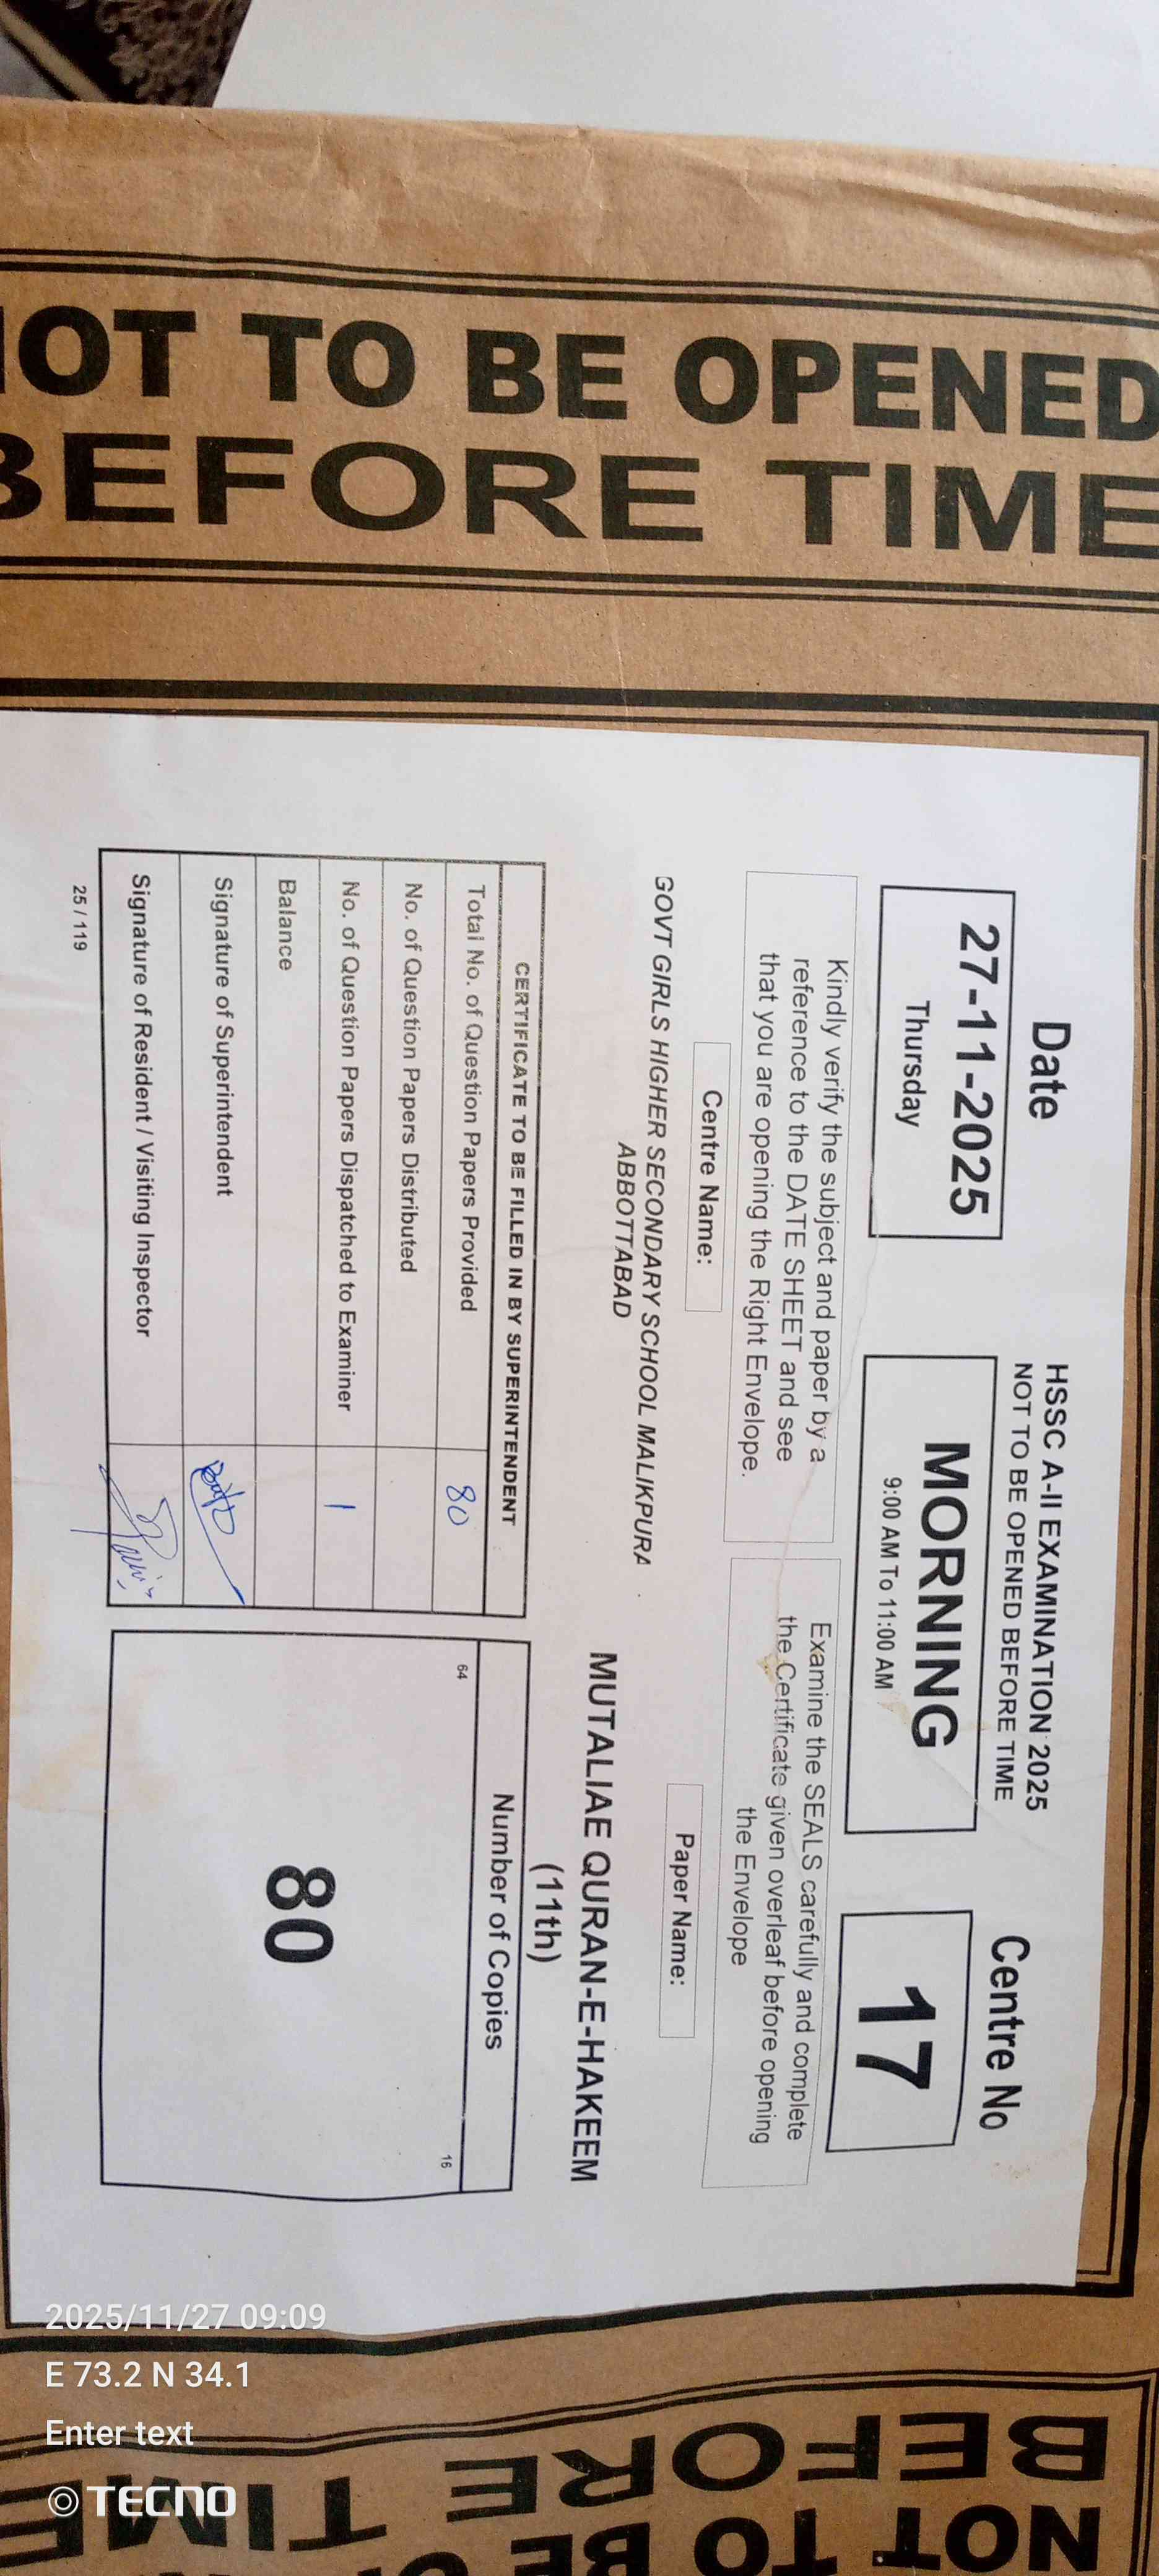 NOT TO BE OPENED
BEFORE TIME
Date
27-11-2025
Thursday
HSSC A-II EXAMINATION 2025
NOT TO BE OPENED BEFORE TIME
MORNING
9:00 AM To 11:00 AM
Centre No
17
Kindly verify the subject and paper by a
reference to the DATE SHEET and see
that you are opening the Right Envelope.
Examine the SEALS carefully and complete
the Certificate given overleaf before opening
the Envelope
Centre Name:
GOVT GIRLS HIGHER SECONDARY SCHOOL MALIKPURA
ABBOTTABAD
Paper Name:
MUTALIAE QURAN-E-HAKEEM
(11th)
CERTIFICATE TO BE FILLED IN BY SUPERINTENDENT
Total No. of Question Papers Provided 80
No. of Question Papers Distributed
No. of Question Papers Dispatched to Examiner 1
Balance
Signature of Superintendent
Signature of Resident / Visiting Inspector
25 / 119
Number of Copies
64 16
80
2025/11/27 09:09
E 73.2 N 34.1
Enter text
TECNO
NOT TO BE
BEFORE TIME